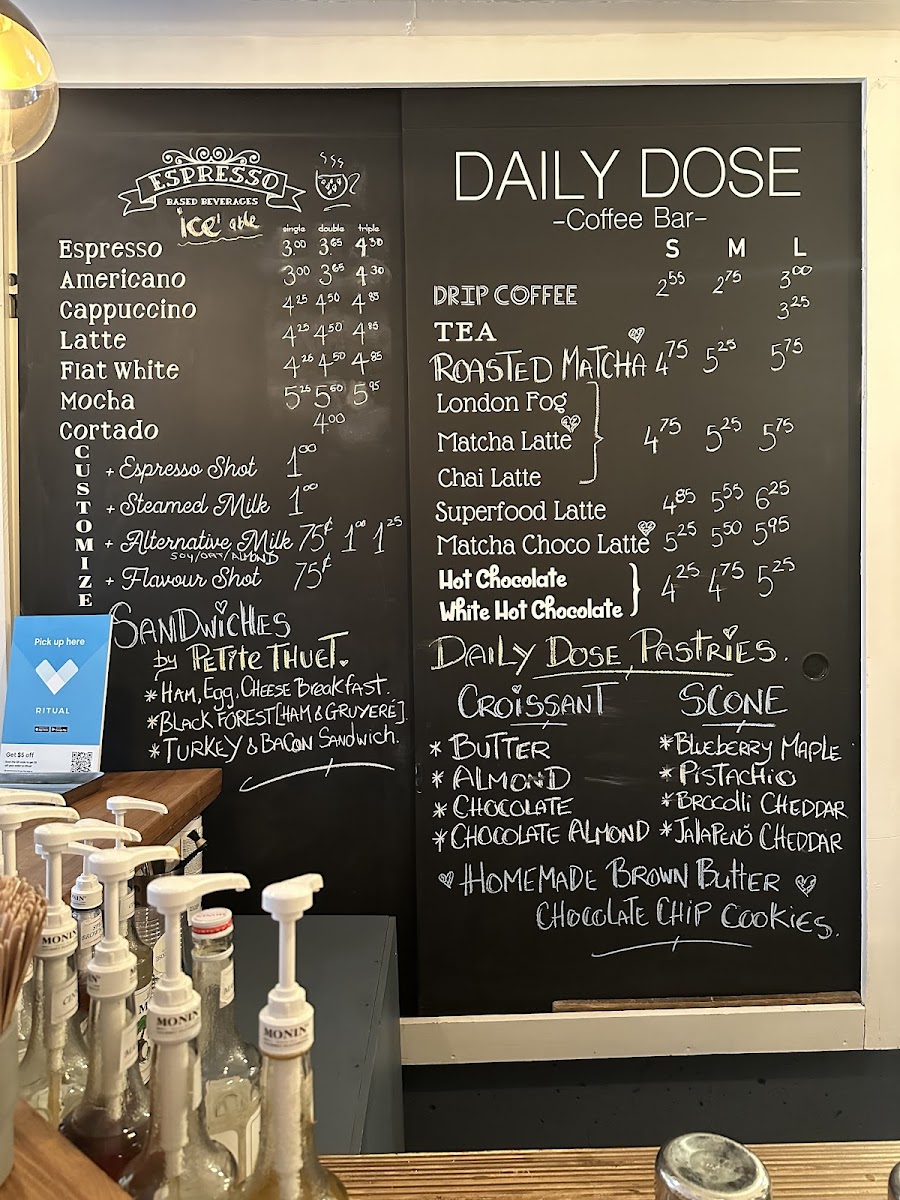 ESPRESSO
BASED BEVERAGES
'ice' able
single double triple
Espresso 3.00 3.65 4.30
Americano 3.00 3.65 4.30
Cappuccino 4.25 4.50 4.85
Latte 4.25 4.50 4.85
Flat White 4.25 4.50 4.85
Mocha 5.25 5.50 5.95
Cortado 4.00
CUSTOMIZE
+ Espresso Shot 1.00
+ Steamed Milk 1.00
+ Alternative Milk 75¢ 1.00 1.25
SOY/OAT/ALMOND
+ Flavour Shot 75¢
SANDWICHES
by PETITE THUET.
*HAM, Egg, CHEESE BreakFast.
*BLACK FOREST [HAM & GRUYERE].
*TURKEY & BACON SANDWICH.
DAILY DOSE
-Coffee Bar-
S M L
DRIP COFFEE 2.55 2.75 3.00
TEA 3.25
ROASTED MATCHA 4.75 5.25 5.75
London Fog
Matcha Latte 4.75 5.25 5.75
Chai Latte
Superfood Latte 4.85 5.55 6.25
Matcha Choco Latte 5.25 5.50 5.95
Hot Chocolate 4.25 4.75 5.25
White Hot Chocolate
DAILY DOSE PASTRIES.
CROISSANT SCONE
* BUTTER *BLUEBERRY MAPLE
* ALMOND *PISTACHIO
* CHOCOLATE *BROCOLLI CHEDDAR
* CHOCOLATE ALMOND *JALAPENŌ CHEDDAR
HOMEMADE BROWN BUTTER
CHOCOLATE CHIP COOKIES.
Pick up here
RITUAL
Get $5 off
MONIN
MONIN
MONIN
MONIN